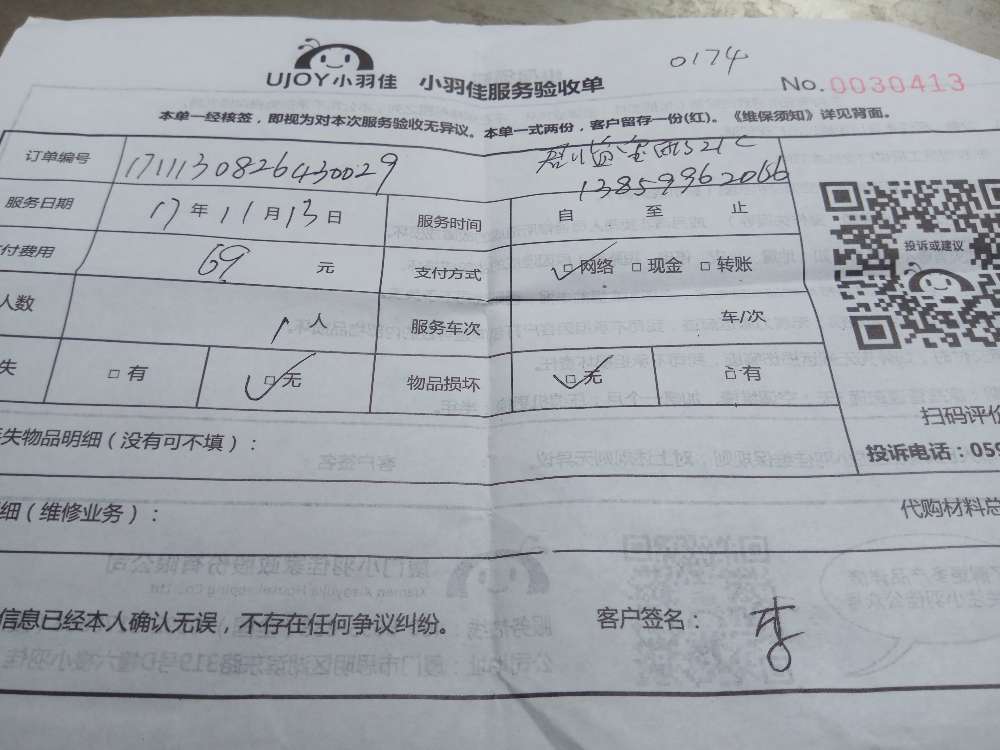 0174
UJOY小羽佳 小羽佳服务验收单 No.0030413
本单一经核签，即视为对本次服务验收无异议。本单一式两份，客户留存一份(红)。《维保须知》详见背面。
订单编号 1711130826430029
13859962066
服务日期 17年11月13日 服务时间 自 至 止
付费用 69 元 支付方式 网络 现金 转账
投诉或建议
人数 1人 服务车次 车/次
失 有 无 物品损坏 无 有
扫码评价
失物品明细（没有可不填）：
投诉电话：059
细（维修业务）： 代购材料总
信息已经本人确认无误，不存在任何争议纠纷。 客户签名：